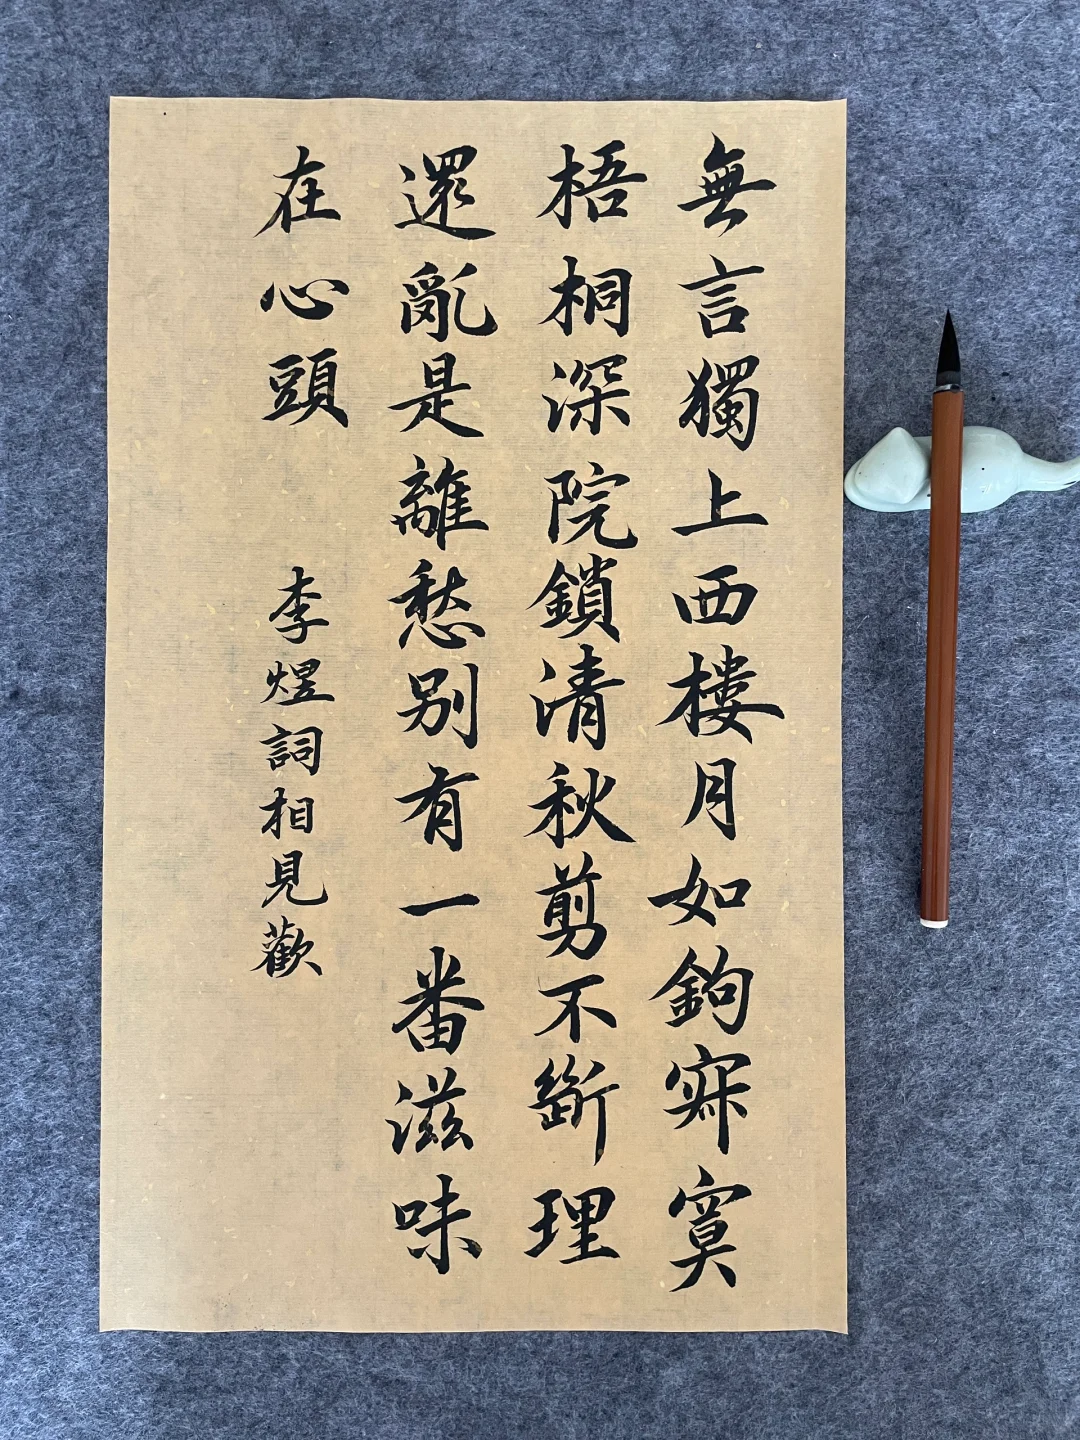 無言獨上西樓月如鉤寂寞
梧桐深院鎖清秋剪不斷理
還亂是離愁別有一番滋味
在心頭
李煜詞相見歡